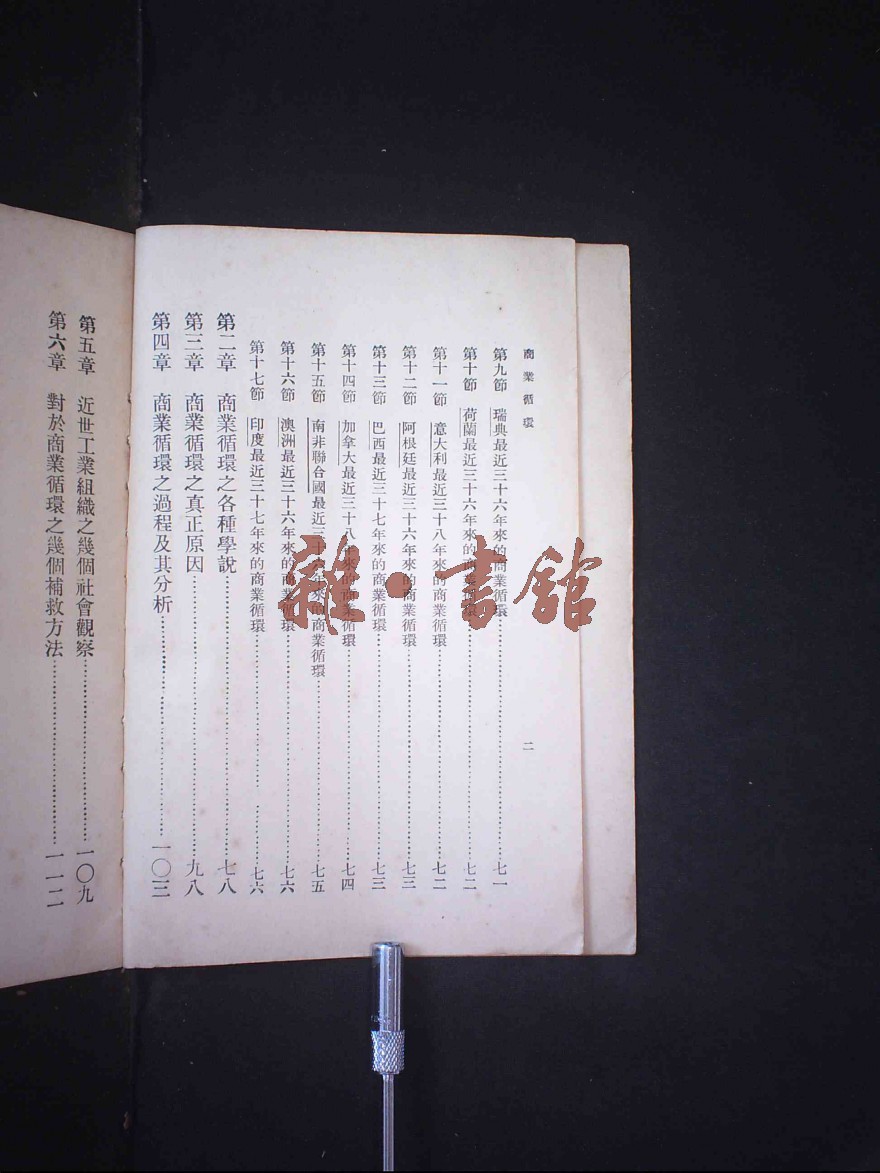 商業循環
二
第九節 瑞典最近三十六年來的商業循環……七一
第十節 荷蘭最近三十六年來的商業循環……七二
第十一節 意大利最近三十八年來的商業循環……七二
第十二節 阿根廷最近三十六年來的商業循環……七三
第十三節 巴西最近三十七年來的商業循環……七三
第十四節 加拿大最近三十八年來的商業循環……七四
第十五節 南非聯合國最近三十六年來的商業循環……七五
第十六節 澳洲最近三十六年來的商業循環……七六
第十七節 印度最近三十七年來的商業循環……七六
第二章 商業循環之各種學說……七八
第三章 商業循環之真正原因……九八
第四章 商業循環之過程及其分析……一〇三
第五章 近世工業組織之幾個社會觀察……一〇九
第六章 對於商業循環之幾個補救方法……一一二
雜·書館